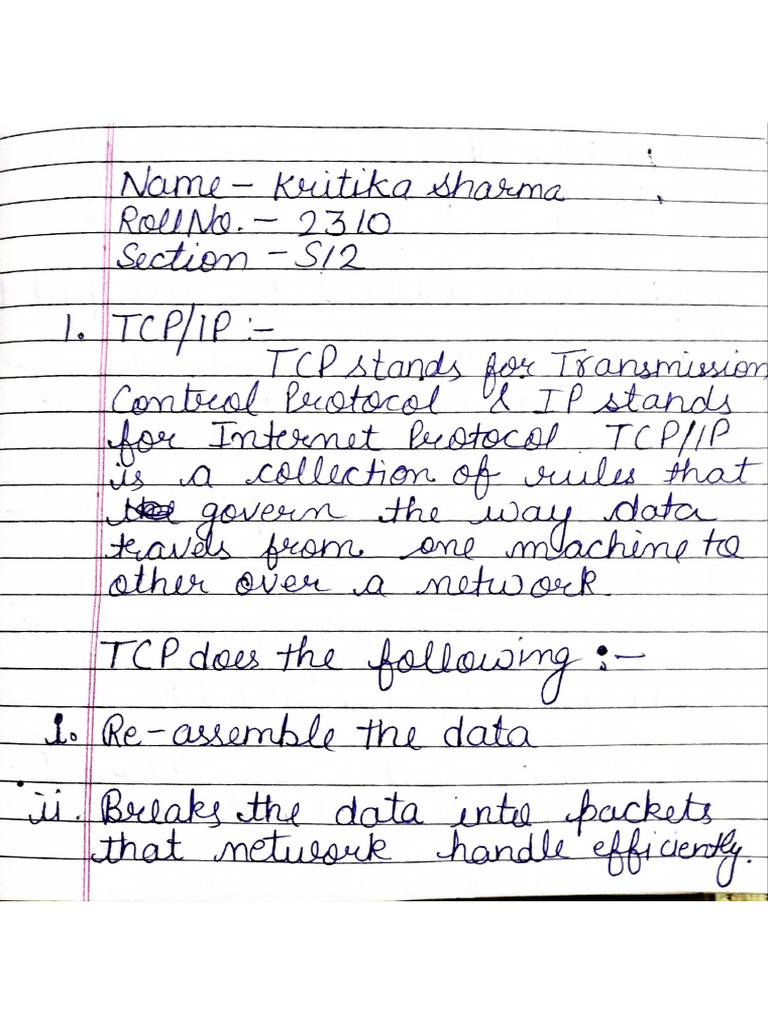 Name - Kritika Sharma
Roll No. - 2310
Section - S12
1. TCP/IP :-
TCP stands for Transmission
Control Protocol & IP stands
for Internet Protocol TCP/IP
is a collection of rules that
govern the way data
travels from one machine to
other over a network.
TCP does the following :-
i. Re-assemble the data
ii. Breaks the data into packets
that network handle efficiently.